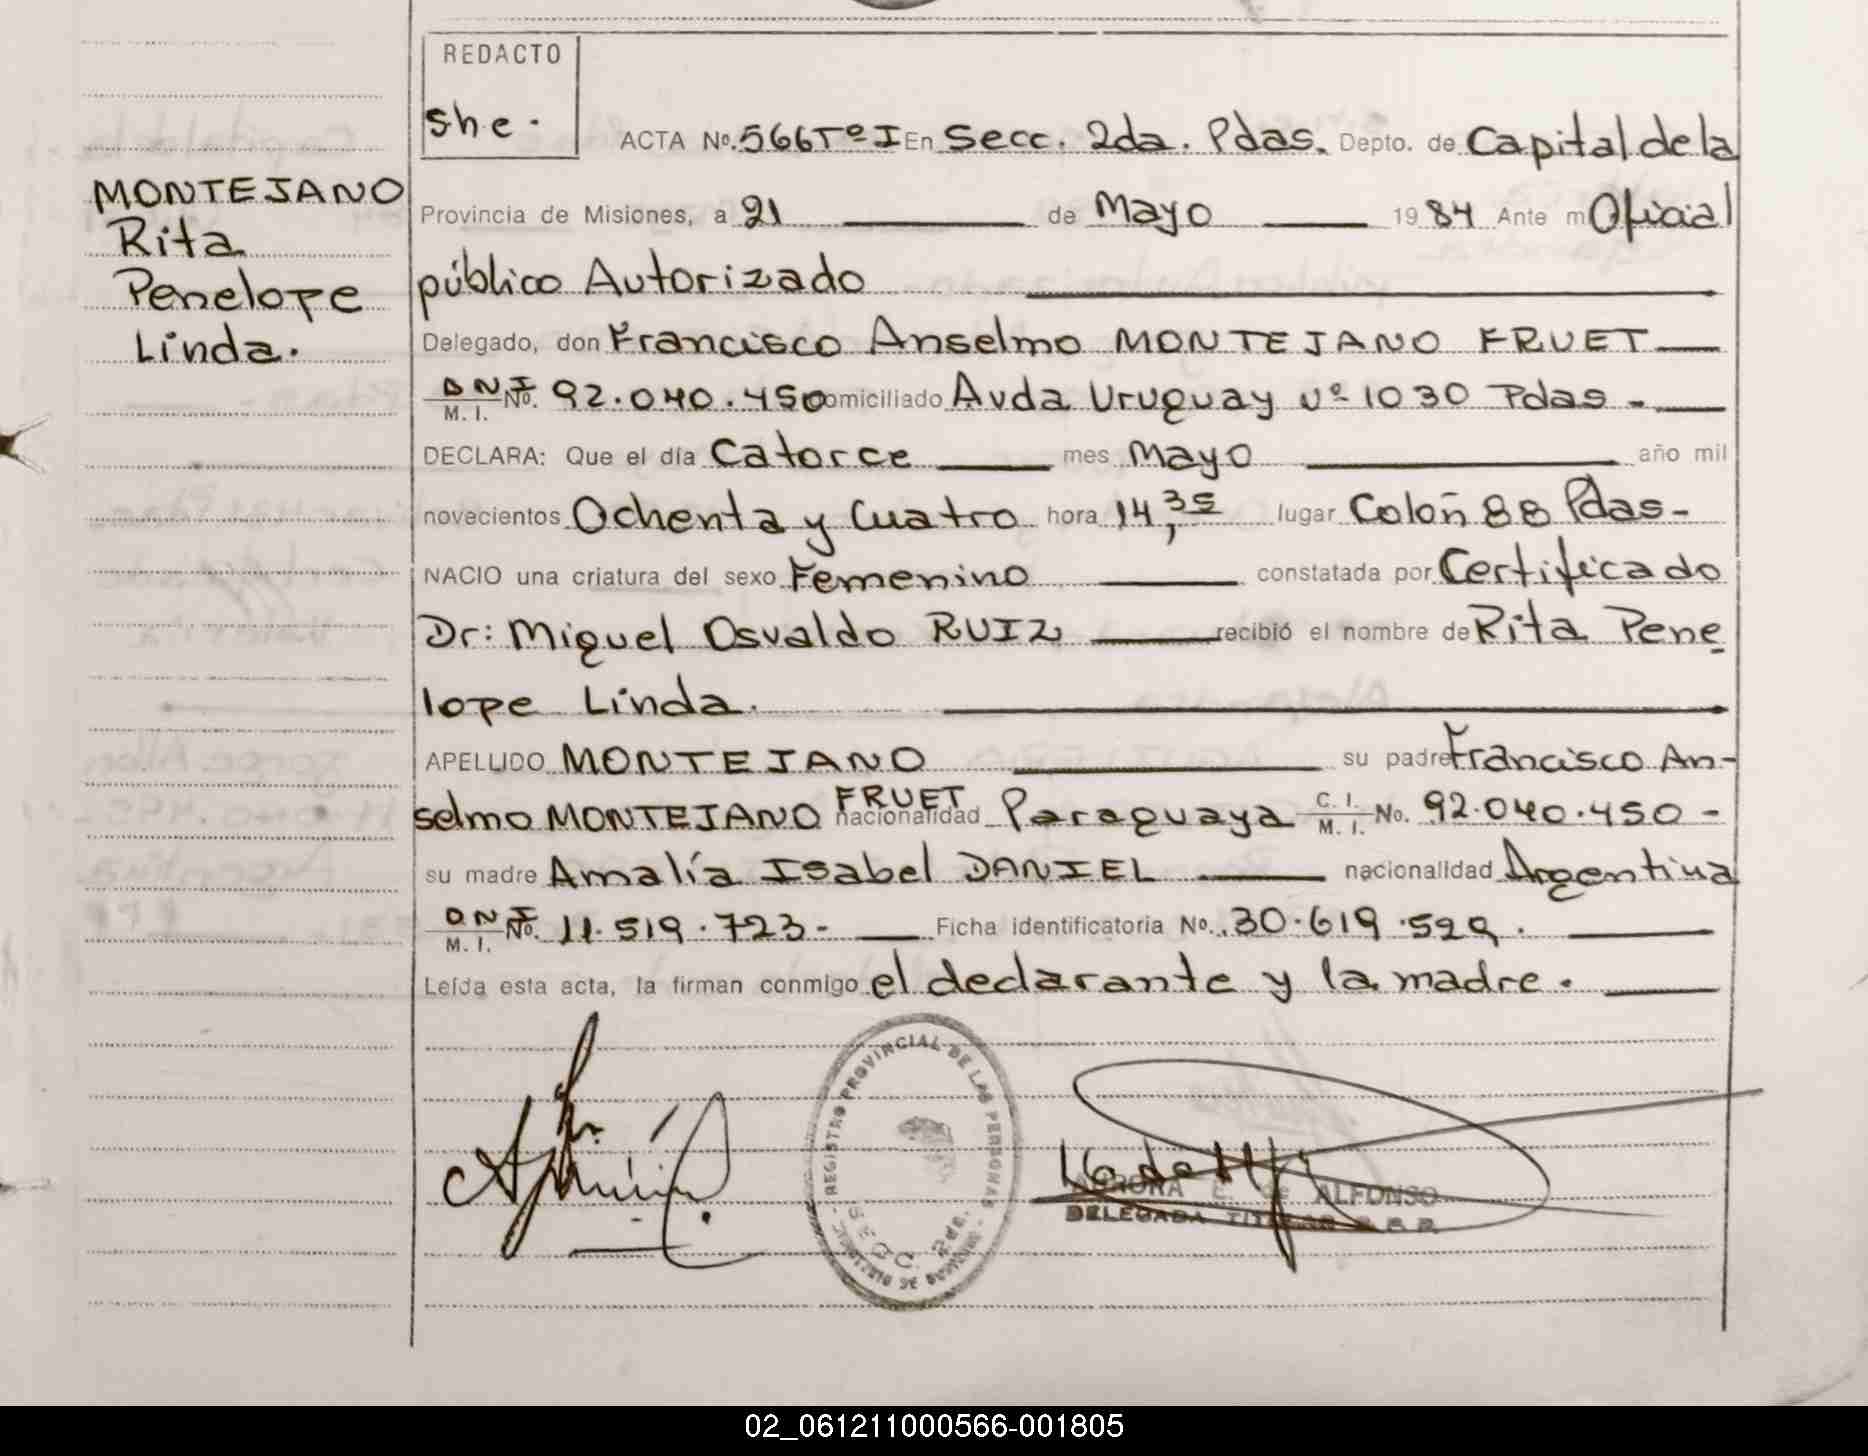 REDACTO
she.
ACTA No. 566 Tº I En Secc. 2da. Pdas. Depto. de Capital de la
MONTEJANO
Rita
Penelope
Linda.
Provincia de Misiones, a 21 de Mayo 1984 Ante m Oficial
público Autorizado
Delegado, don Francisco Anselmo MONTEJANO FRUET
DNI M. I. No. 92.040.450 domiciliado Avda Uruguay nº 1030 Pdas -
DECLARA: Que el día Catorce mes Mayo año mil
novecientos Ochenta y Cuatro hora 14,35 lugar Colón 88 Pdas-
NACIO una criatura del sexo Femenino constatada por Certificado
Dr: Miguel Osvaldo RUIZ recibió el nombre de Rita Pene
lope Linda.
APELLIDO MONTEJANO su padre Francisco An-
selmo MONTEJANO FRUET nacionalidad Paraguaya C. I. M. I. No. 92.040.450-
su madre Amalía Isabel DANIEL nacionalidad Argentina
DNI M. I. No. 11.519.723- Ficha identificatoria No. 30.619.529.
Leída esta acta, la firman conmigo el declarante y la madre.
REGISTRO PROVINCIAL DE LAS PERSONAS
SECC. 2da.
MINISTERIO DE GOBIERNO
AURORA E. DE ALFONSO
DELEGADA TITULAR
02_061211000566-001805